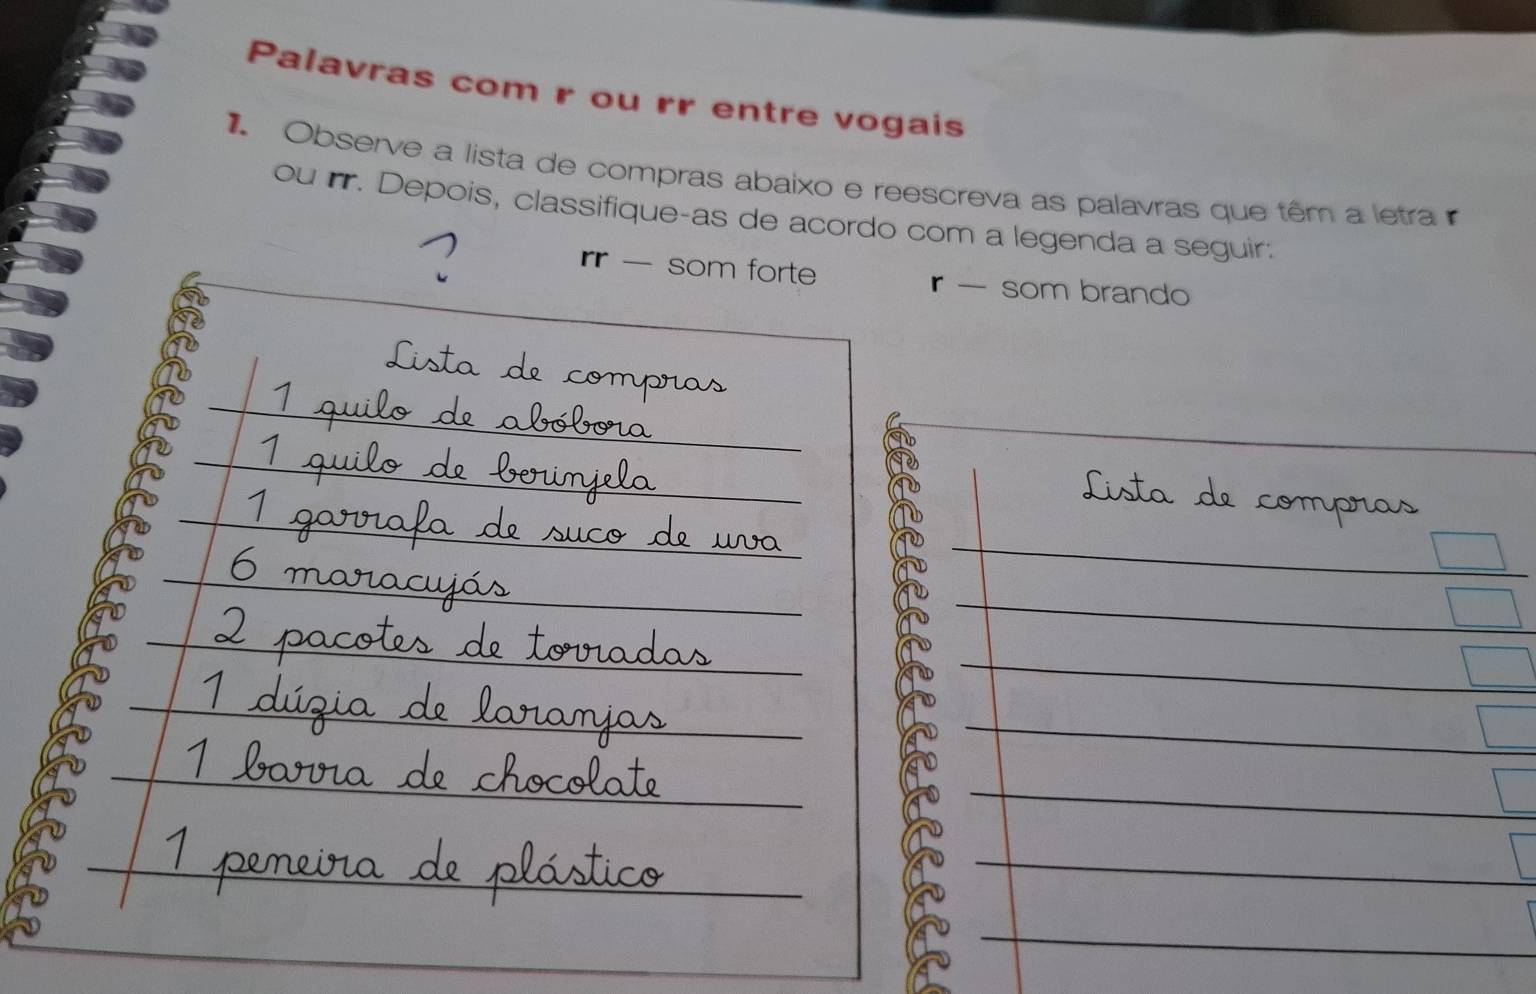 Palavras com r ou rr entre vogais
1. Observe a lista de compras abaixo e reescreva as palavras que têm a letra r
ou rr. Depois, classifique-as de acordo com a legenda a seguir:
?
rr — som forte
r — som brando
Lista de compras
1 quilo de abóbora
1 quilo de berinjela
1 garrafa de suco de uva
6 maracujás
2 pacotes de torradas
1 dúzia de laranjas
1 barra de chocolate
1 peneira de plástico
Lista de compras